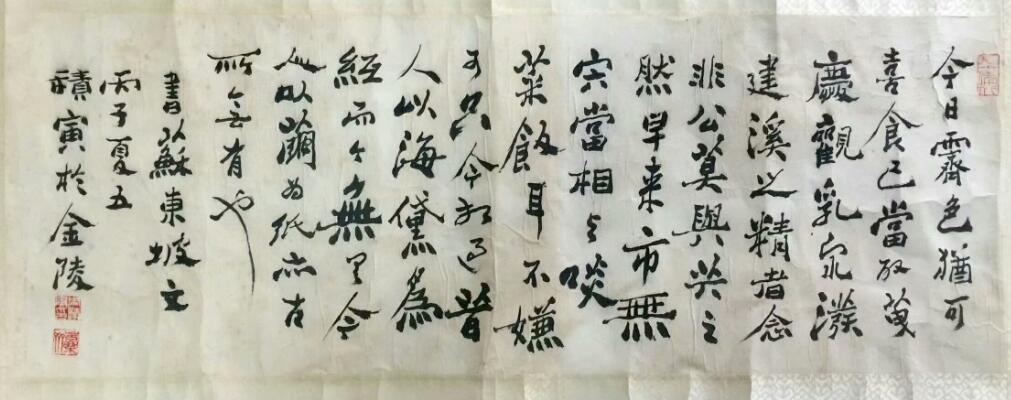 今日霽色猶可
喜食已當取
慶觀乳泉潑
建溪之精者念
非公莫與共之
然早來市無
肉當相與啖
菜飯耳不嫌
可只今相過昔
人以海黛為
經而今無今
人以繭為紙亦古
所無有也
書蘇東坡文
丙子夏五
積寅於金陵